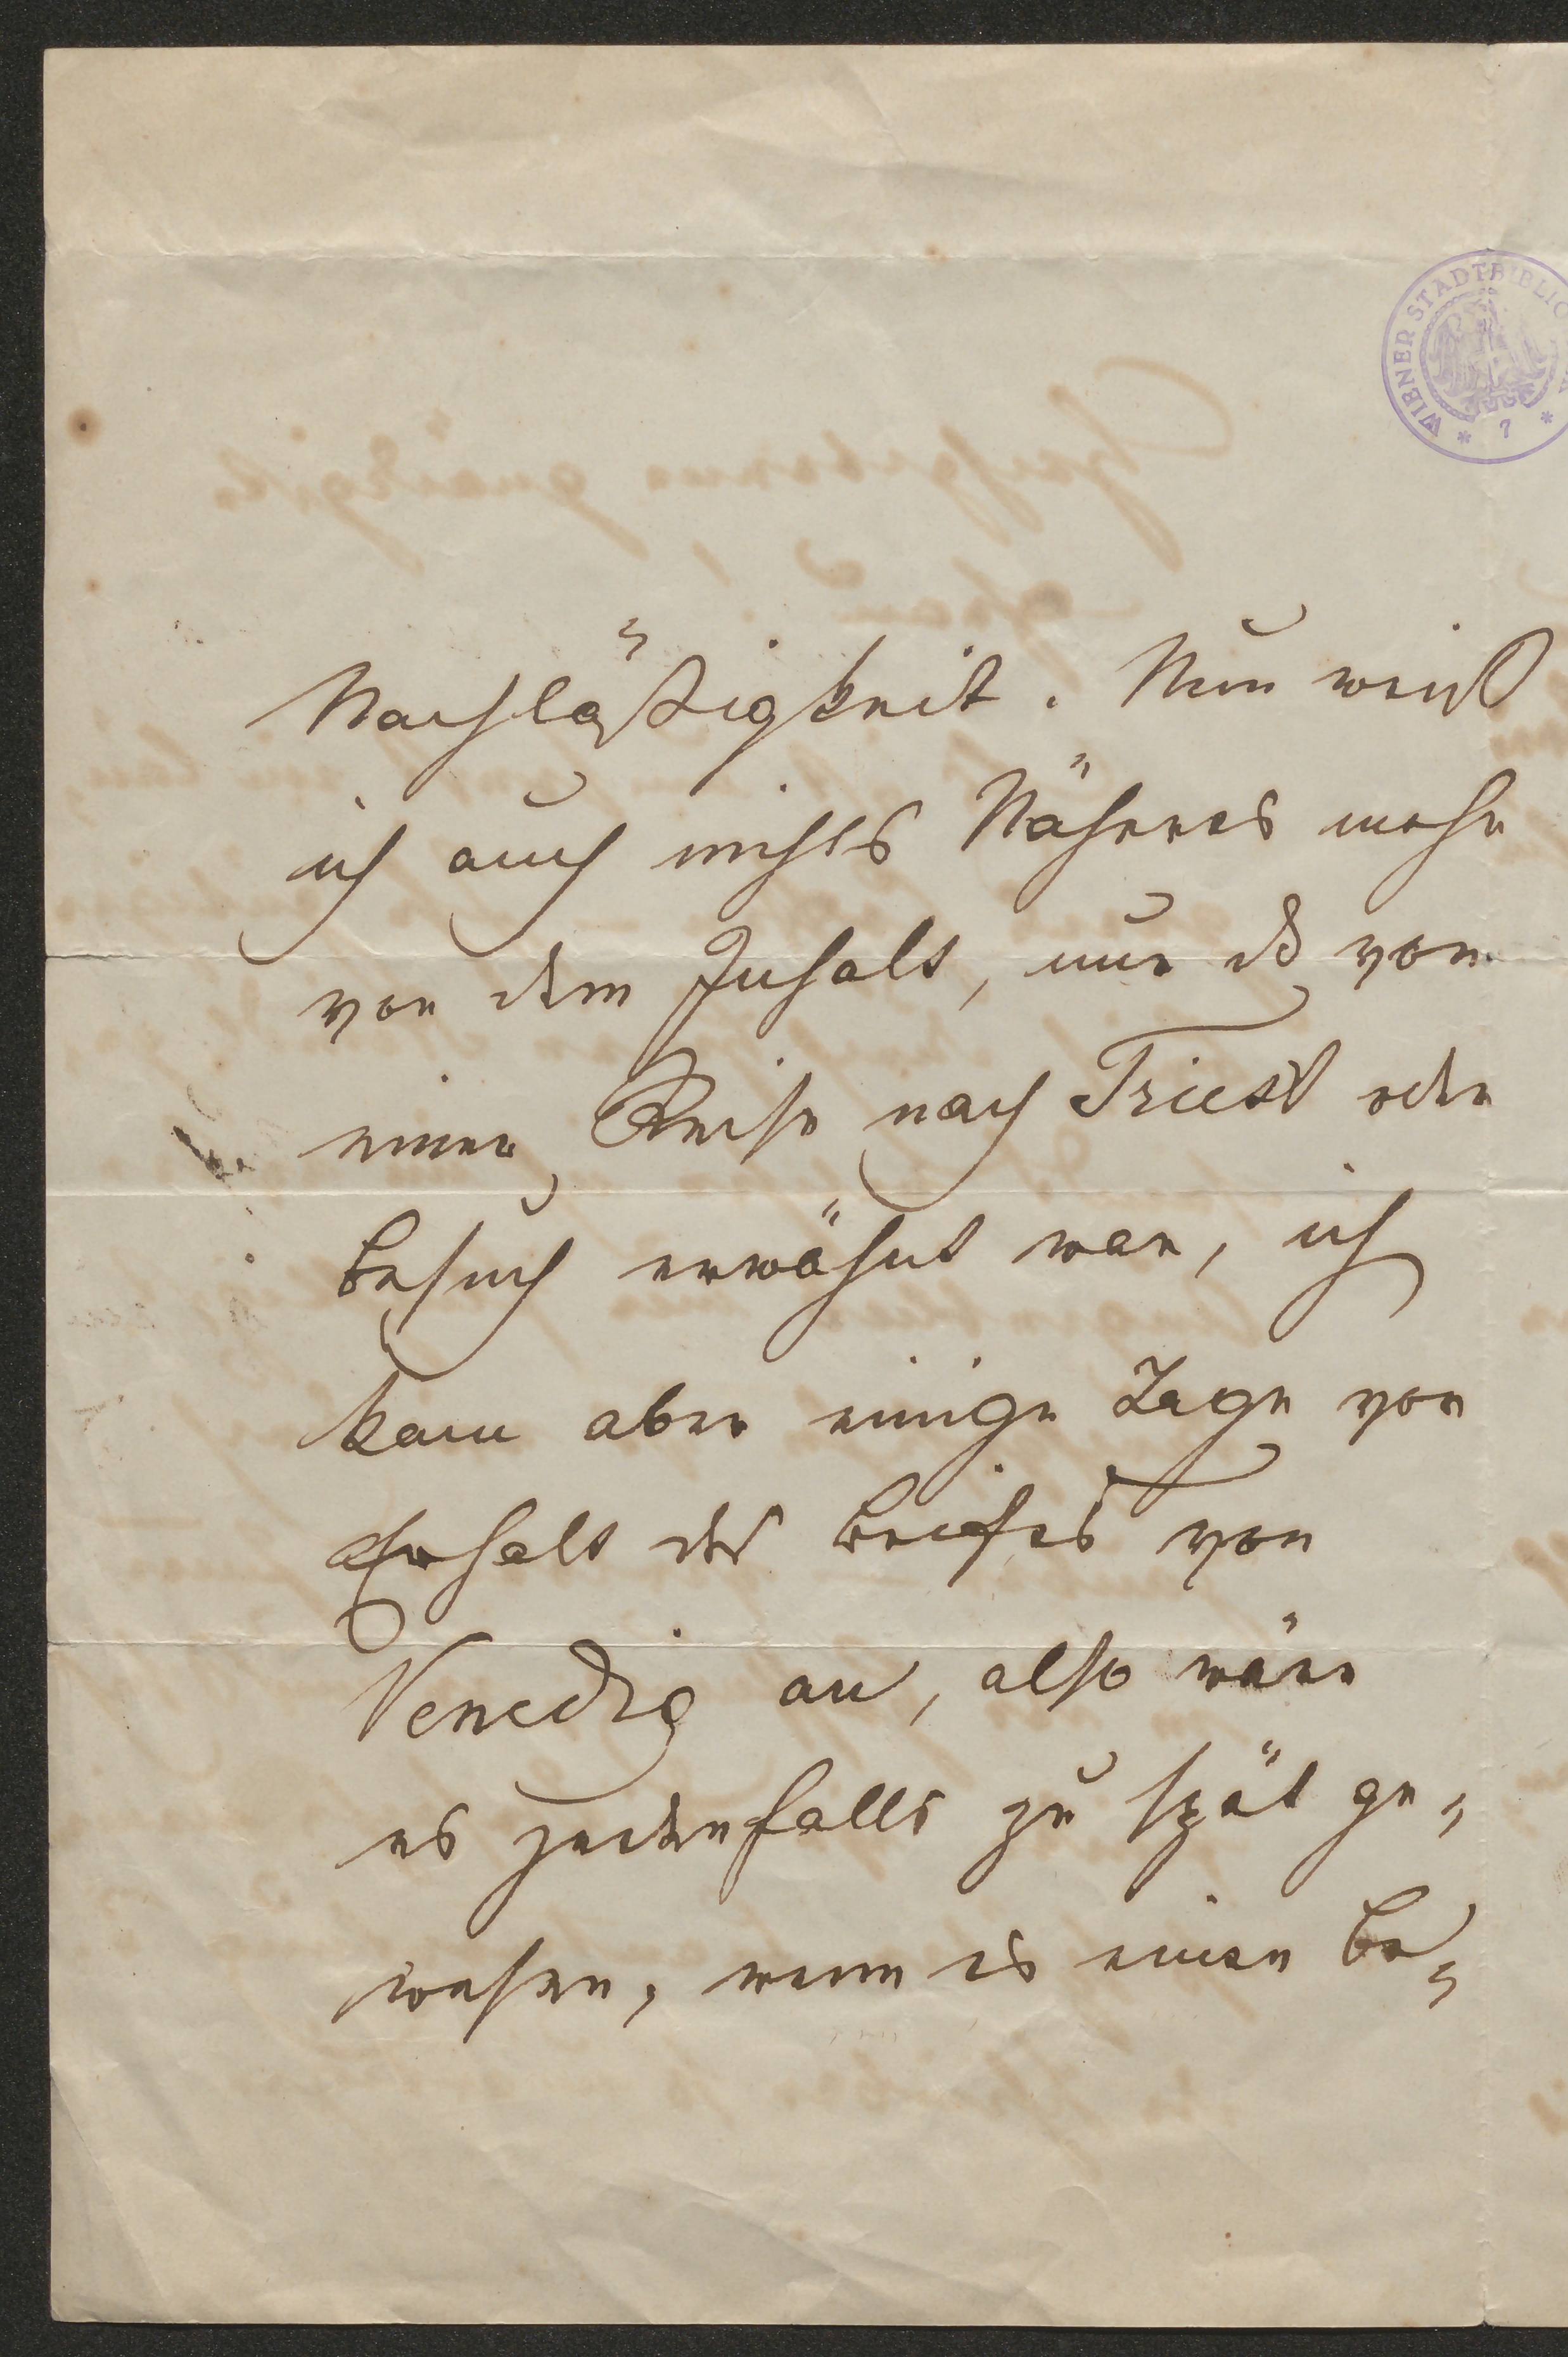 WIENER STADTBIBLIO
* 7 *
Nachläßigkeit. Nun weiß
ich auch nichts Näheres mehr
von dem Inhalt, nur daß von
einer Reise nach Triest oder
Besuch erwähnt war, ich
kam aber einige Tage vor
Erhalt des Briefes von
Venedig an, also wäre
es jedenfalls zu spät ge=
wesen, wenn es einen Be=